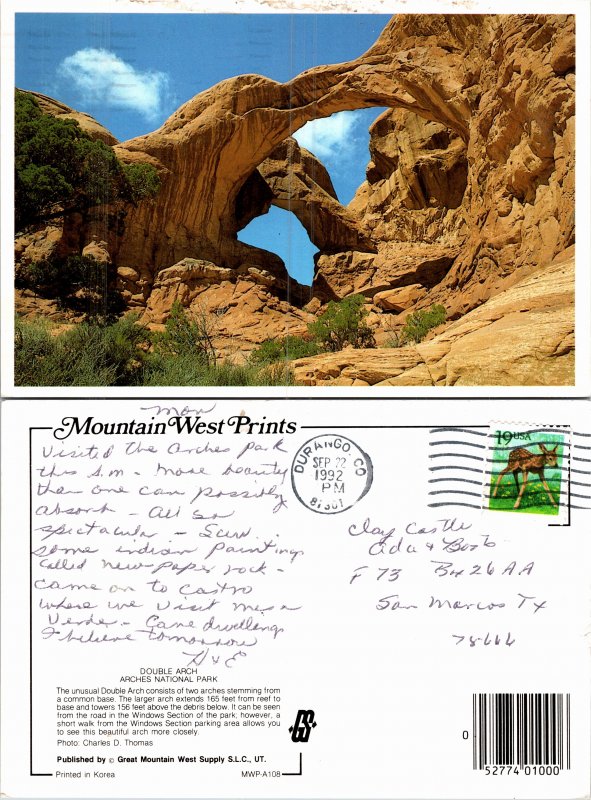 Mountain West Prints
mon
Visited the arches park
this a.m - more beauty
than one can possibly
absorb - All so
spectacular - Saw
some indian paintings
called news paper rock -
came on to Castro
where we visit mesa
Verde - Cave dwellings
I believe tomorrow
H & E
DURANGO, CO
SEP 22
1992
PM
81301
19 USA
Clay Castle
Ada & Bob
F 73 Bx 26 AA
San Marcos Tx
78666
DOUBLE ARCH
ARCHES NATIONAL PARK
The unusual Double Arch consists of two arches stemming from
a common base. The larger arch extends 165 feet from reef to
base and towers 156 feet above the debris below. It can be seen
from the road in the Windows Section of the park; however, a
short walk from the Windows Section parking area allows you
to see this beautiful arch more closely.
Photo: Charles D. Thomas
Published by © Great Mountain West Supply S.L.C., UT.
Printed in Korea MWP-A108
GS
0 52774 01000